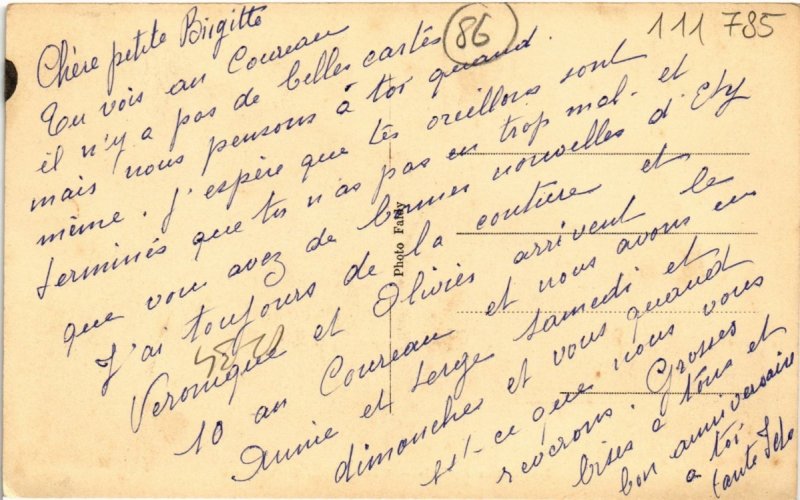 86
111 785
Chère petite Birgitte
Tu vois au Coureau
il n'y a pas de belles cartes
mais nous pensons à toi quand
même. J'espère que tes oreillons sont
terminés que tu n'as pas eu trop mal - et
que vous avez de bonnes nouvelles d'Ely
J'ai toujours de la couture et
Veronique et Olivier arrivent le
10 au Coureau et nous avons eu
Annie et Serge samedi et
dimanche et vous quand
est-ce que nous vous
reverons. Grosses
bises à tous et
bon anniversaire
a toi
tante
Photo Faldy